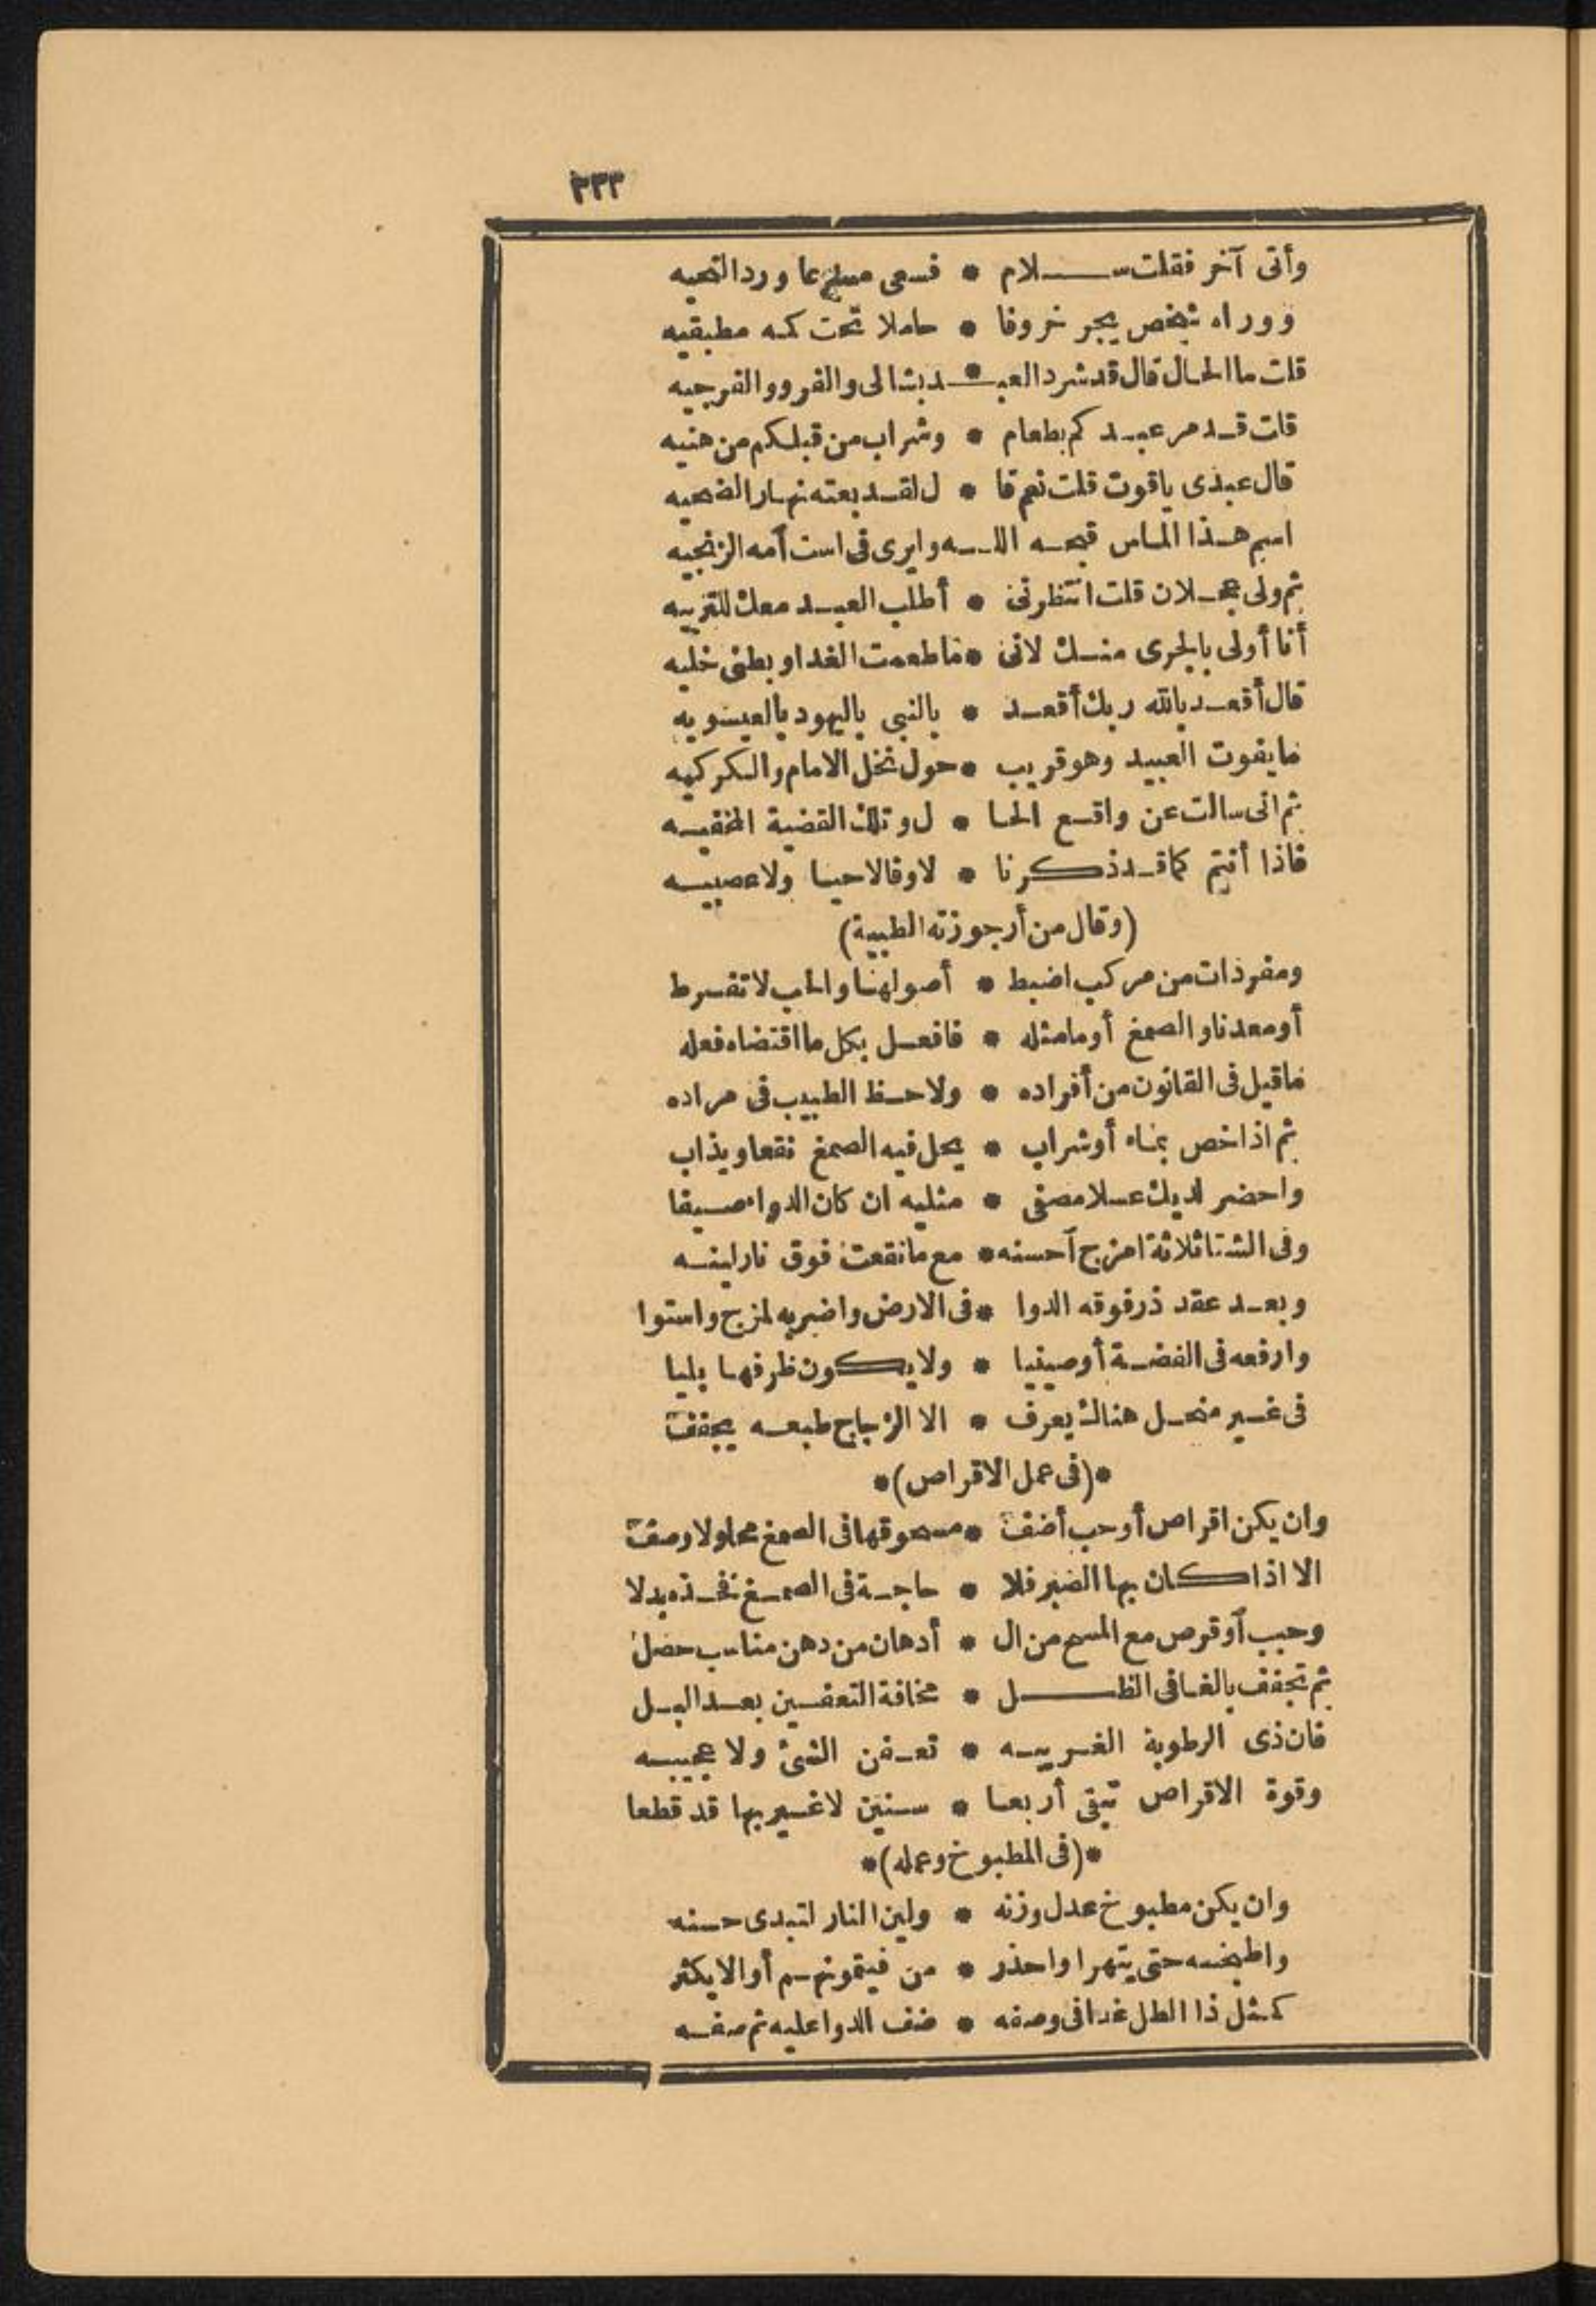 ٣٣٣
وأتى آخر فقلت ســـلام * فسعى مسرعا ورد التحيه
ووراه شخص يجر خروفا * حاملا تحت كمه مطبقيه
قلت ما الحال قال قد شرد العبـ * ـد بثالى والفرو والفرجيه
قلت قد مر عبدكم بطعام * وشراب من قبلكم من هنيه
قال عبدى ياقوت قلت نعم قا * ل لقد بعته نهار الضحيه
اسم هذا الماس قبحه اللـه وايرى فى است أمه الزنجيه
ثم ولى عجلان قلت انتظرنى * أطلب العبد معك للتغزيه
أنا أولى بالجرى منك لانى * ما طعمت الغدا وبطنى خليه
قال أقعد بالله ربك أقعد * بالنبى باليهود بالعيسويه
ما يفوت العبيد وهو قريب * حول نخل الامام والكركيه
ثم انى سالت عن واقع الحا * ل وتلك القضية المخفيه
فاذا أنتم كما قد ذكرنا * لا وفا لا حيا ولا عصبيه
(وقال من أرجوزته الطبية)
ومفردات من مركب اضبط * أصولها والحب لا تفرط
أو معدنا والصمغ أو ما مثله * فافعل بكل ما اقتضاه فعله
ما قيل فى القانون من أفراده * ولاحظ الطبيب فى مراده
ثم اذا خص بماء أو شراب * يحل فيه الصمغ نقعا ويذاب
واحضر لديك عسلا مصفى * مثليه ان كان الدواء صيفا
وفى الشتا ثلاثة امزج أحسنه * مع ما نقعت فوق نار لينه
وبعد عقد ذر فوقه الدوا * فى الارض واضربه لمزج واستوا
وارفعه فى الفضة أو صينيا * ولا يكون ظرفها بليا
فى غير منحل هنالك يعرف * الا الزجاج طبعه يجفف
*(فى عمل الاقراص)*
وان يكن اقراص أو حب أضف * مسحوقها فى الصمغ محلولا وصف
الا اذا كان بها الصبر فلا * حاجة فى الصمغ فخذه بدلا
وحبب أو قرص مع المسح من ال * أدهان من دهن مناسب حصل
ثم تجفف بالغا فى الظـــل * مخافة التعفين بعد البل
فان ذى الرطوبة الغريبه * تعفن الشئ ولا عجيبه
وقوة الاقراص تبقى أربعا * سنين لا غير بها قد قطعا
*(فى المطبوخ وعمله)*
وان يكن مطبوخ عدل وزنه * ولين النار لتبدى حسنه
واطبخه حتى يتهرا واحذر * من أو الا يكثر
كمثل ذا الطل غدا فى وصفه * ضف الدوا عليه ثم صفه